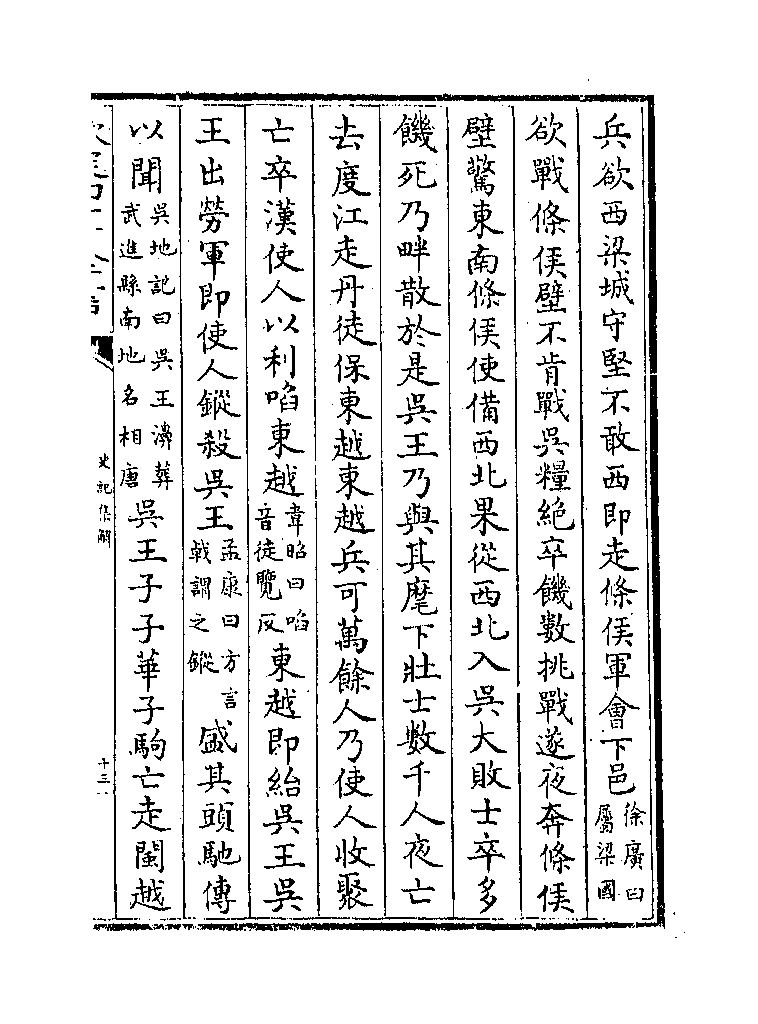 兵欲西梁城守堅不敢西即走條侯軍會下邑徐廣曰屬梁國
欲戰條侯壁不肯戰吳糧絶卒饑數挑戰遂夜奔條侯
壁驚東南條侯使備西北果從西北入吳大敗士卒多
饑死乃畔散於是吳王乃與其麾下壯士數千人夜亡
去度江走丹徒保東越東越兵可萬餘人乃使人收聚
亡卒漢使人以利啗東越韋昭曰啗音徒覽反東越即紿吳王吳
王出勞軍即使人鏦殺吳王孟康曰方言戟謂之鏦盛其頭馳傳
以聞吳地記曰吳王濞葬武進縣南地名相唐吳王子子華子駒亡走閩越
史記集解
十三